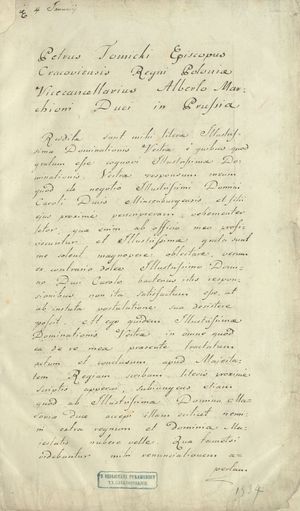 4 Januarij
Petrus Tomicki Episcopus
Cracoviensis Regni Poloniæ
Vicecancellarius Alberto Mar-
chioni Duci in Prussia
Reddita sunt mihi literæ Illustris-
sima Dominationis Vestræ è quibus quod
gratum esse cognovi Illustrissimæ Do-
minationis Vestræ responsum meum
quod de negotio Illustrissimi Domini
Caroli Ducis Munsterburgensis, et filij
ejus proxime perscripseram vehementer
lætor, quæ enim ab officio meo profi-
ciscuntur et Illustrissimæ grata sunt
me solent magnopere oblectare, verum
ex contrario doleo Illustrissimo Domi-
no Duci Carolo hactenus istis respon-
sionibus non ita satisfactum esse, ut
ab instituta postulatione sua desistere
possit. At ego quidem Illustrissimæ
Dominationis Vestræ in omne quod
ea de re me præsente tractatum
actum et conclusum apud Majesta-
tem Regiam scribam literis proxime
scriptis apperui, subjungens etiam
quod ab Illustrissima Domina Ma-
zovia duce accepi illam scilicet nemi-
ni extra regnum et Dominia Ma-
jestatis nubere velle. Qua tametsi
videbantur mihi renunciationem a-
pertam
Z BIBLIOTEKI PURAWSKIEJ
1534